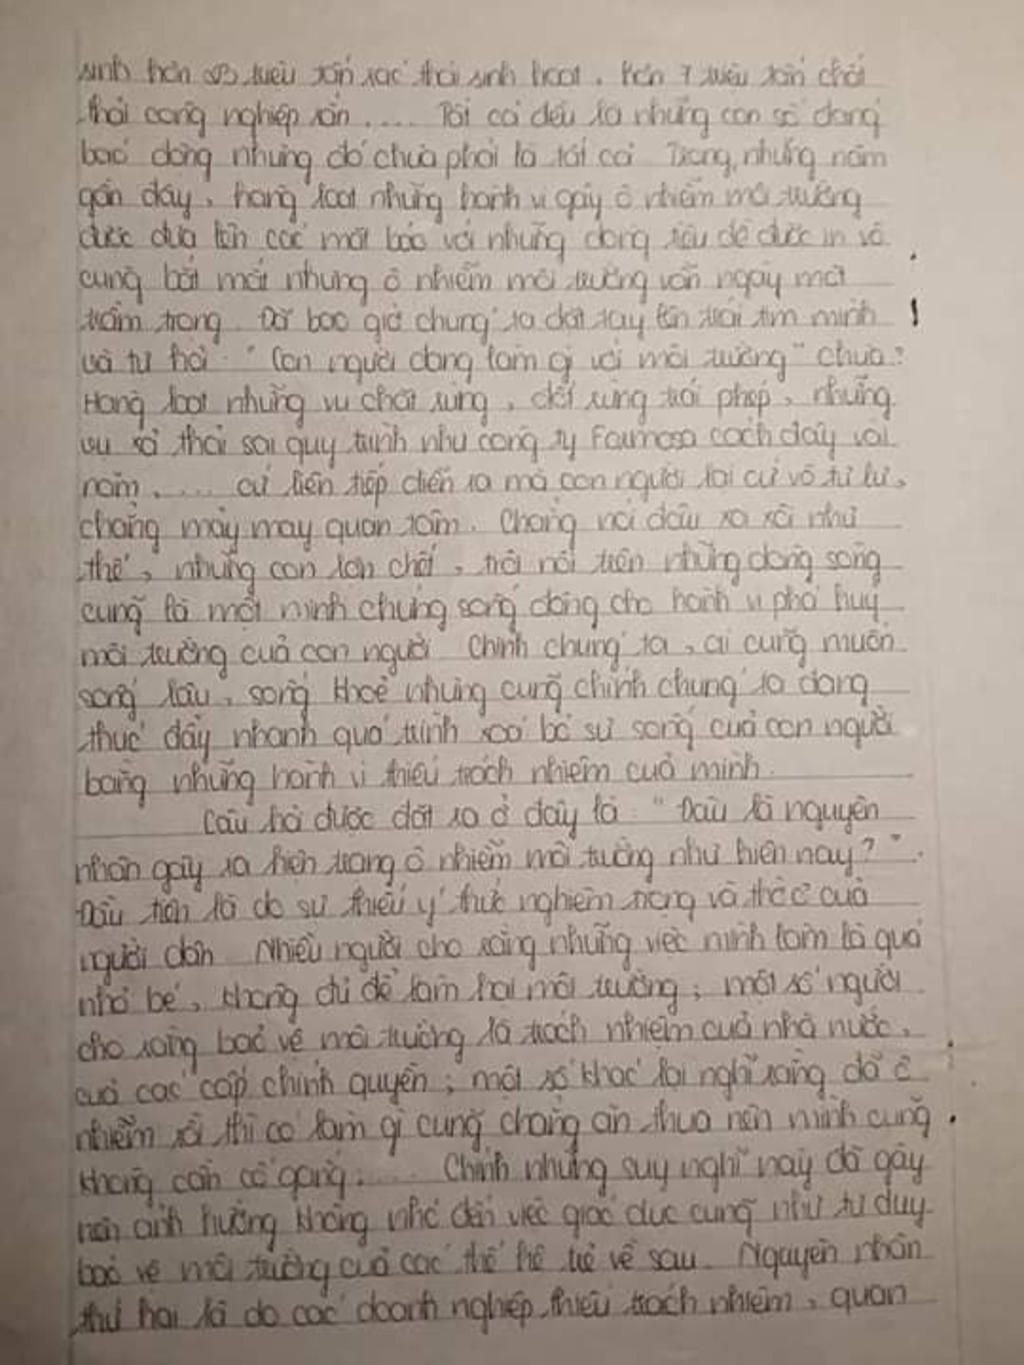 sinh hơn 23 triệu tấn rác thải sinh hoạt, hơn 7 triệu tấn chất
thải công nghiệp rắn.... Tất cả đều là những con số đáng
báo động nhưng đó chưa phải là tất cả. Trong những năm
gần đây, hàng loạt những hành vi gây ô nhiễm môi trường
được đưa lên các mặt báo với những dòng tiêu đề được in vô
cùng bắt mắt nhưng ô nhiễm môi trường vẫn ngày một
trầm trọng. Đã bao giờ chúng ta đặt tay lên trái tim mình
và tự hỏi: "Con người đang làm gì với môi trường" chưa?
Hàng loạt những vụ chặt rừng, đốt rừng trái phép, những
vụ xả thải sai quy trình như công ty Formosa cách đây vài
năm,.... cứ liên tiếp diễn ra mà con người lại cứ vô tư lự,
chẳng mảy may quan tâm. Chẳng nói đâu xa xôi như
thế, những con lợn chết, trôi nổi trên những dòng sông
cũng là một minh chứng sống động cho hành vi phá huỷ
môi trường của con người. Chính chúng ta, ai cũng muốn
sống lâu, sống khoẻ nhưng cũng chính chúng ta đang
thúc đẩy nhanh quá trình xoá bỏ sự sống của con người
bằng những hành vi thiếu trách nhiệm của mình.
Câu hỏi được đặt ra ở đây là: "Đâu là nguyên
nhân gây ra hiện trạng ô nhiễm môi trường như hiện nay?".
Đầu tiên là do sự thiếu ý thức nghiêm trọng và thờ ơ của
người dân. Nhiều người cho rằng những việc mình làm là quá
nhỏ bé, không đủ để làm hại môi trường; một số người
cho rằng bảo vệ môi trường là trách nhiệm của nhà nước,
của các cấp chính quyền; một số khác lại nghĩ rằng đã ô
nhiễm rồi thì có làm gì cũng chẳng ăn thua nên mình cũng
không cần cố gắng;.... Chính những suy nghĩ này đã gây
nên ảnh hưởng không nhỏ đến việc giáo dục cũng như tư duy
bảo vệ môi trường của các thế hệ trẻ về sau. Nguyên nhân
thứ hai là do các doanh nghiệp thiếu trách nhiệm, quan